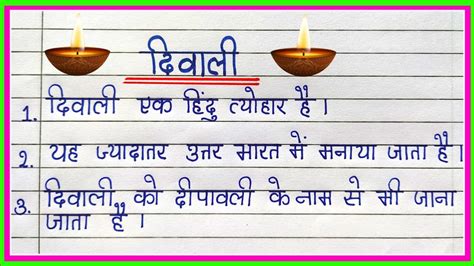 दिवाली
1. दिवाली एक हिंदु त्योहार है।
2. यह ज्यादातर उत्तर भारत में मनाया जाता है।
3. दिवाली को दीपावली के नाम से भी जाना
जाता है।